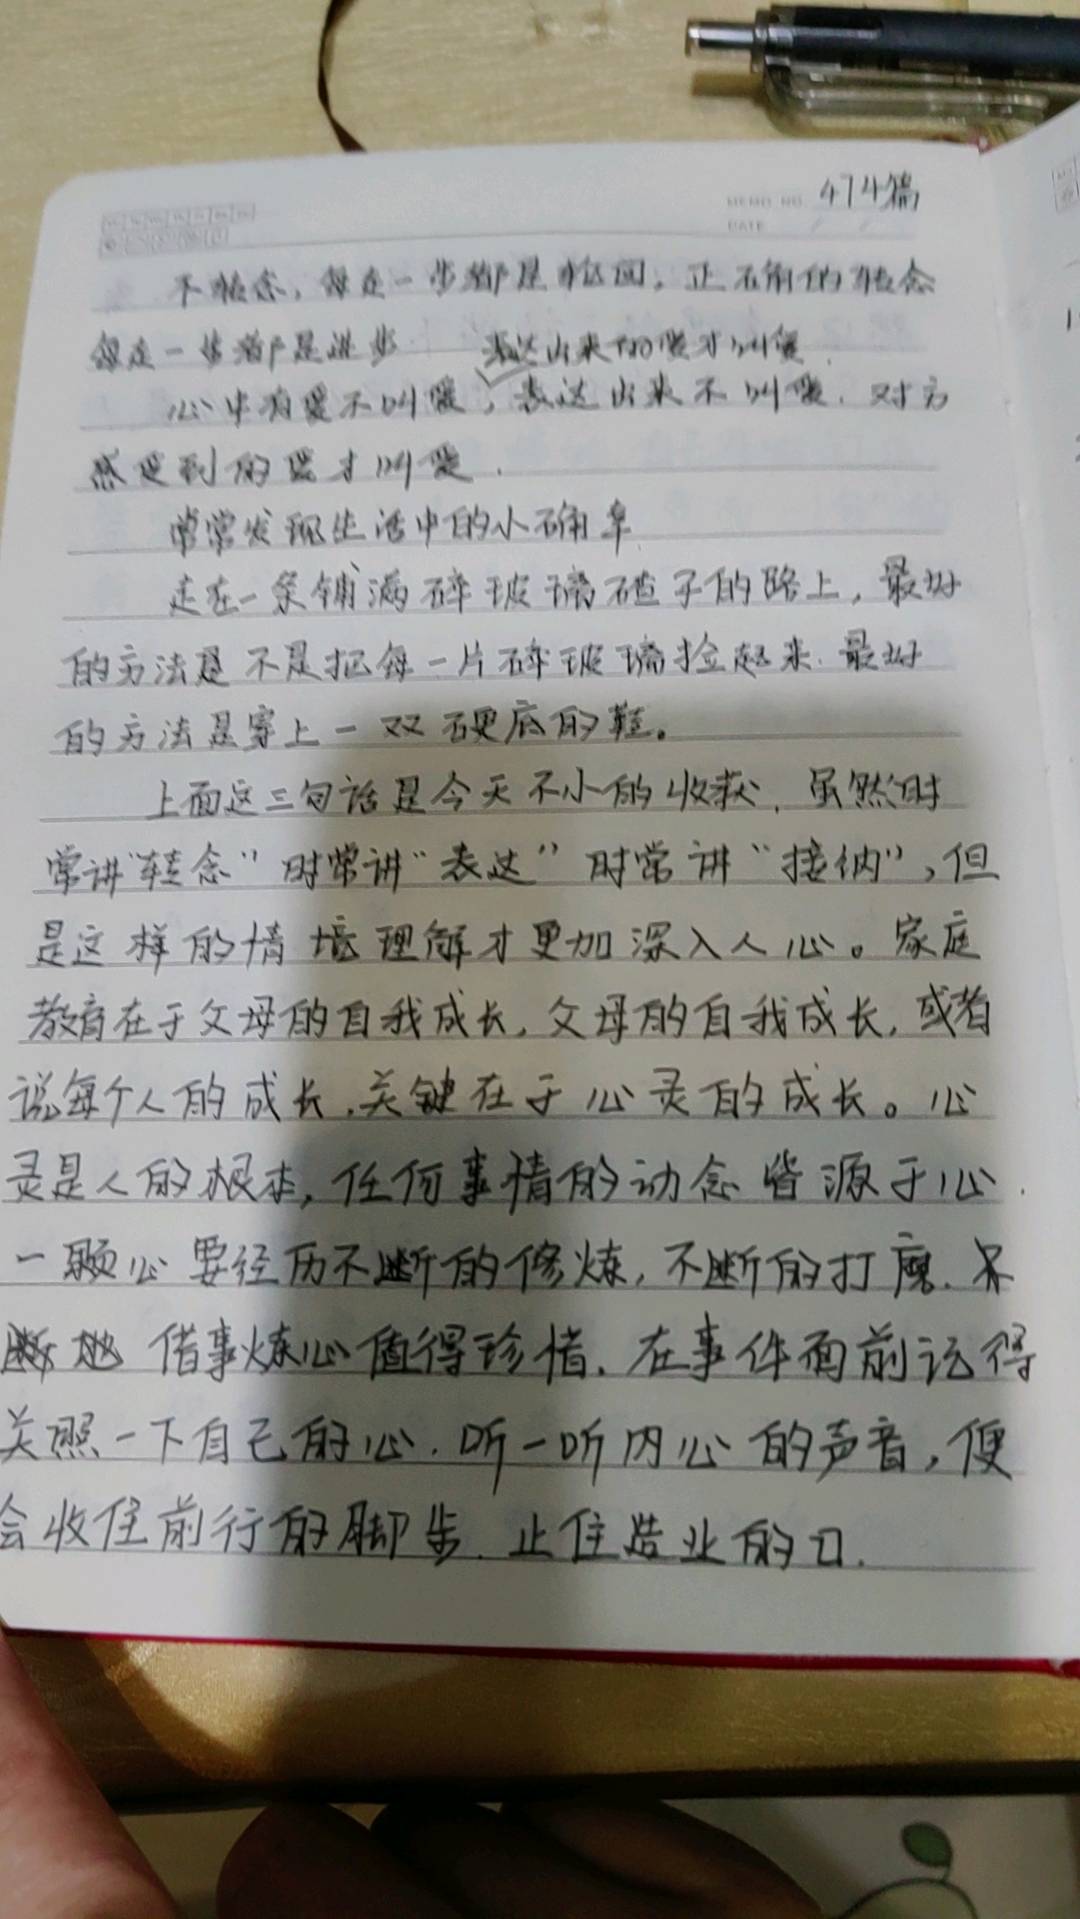 MEMO NO. 474篇
DATE / /
不转念，每走一步都是 正确的转念
每走一步都是进步 表达出来的爱才叫爱.
心中有爱不叫爱，表达出来不叫爱. 对方
感受到的爱才叫爱.
常常发现生活中的小确幸
走在一条铺满碎玻璃碴子的路上，最好
的方法是不是把每一片碎玻璃捡起来. 最好
的方法是穿上一双硬底的鞋。
上面这三句话是今天不小的收获. 虽然时
常讲“转念”时常讲“表达”时常讲“接纳”，但
是这样的情境理解才更加深入人心。家庭
教育在于父母的自我成长，父母的自我成长，或者
说每个人的成长.关键在于心灵的成长。心
灵是人的根本，任何事情的动念皆源于心.
一颗心要经历不断的修炼，不断的打磨.不
断地 借事炼心值得珍惜. 在事件面前记得
关照一下自己的心. 听一听内心的声音，便
会收住前行的脚步. 止住造业的口.